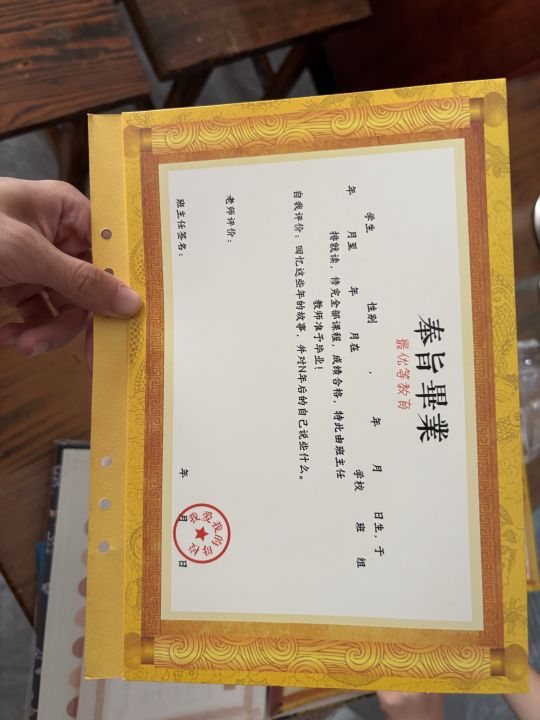 奉旨畢業
最优等教育
学生 性别 , 年 月 日生,于
年 月至 年 月在 学校 班 组
排就读,修完全部课程,成绩合格,特此由班主任
教师准予毕业!
自我评价:回忆这些年的故事,并对N年后的自己说些什么。
老师评价:
班主任签名:
年 月 日
我的